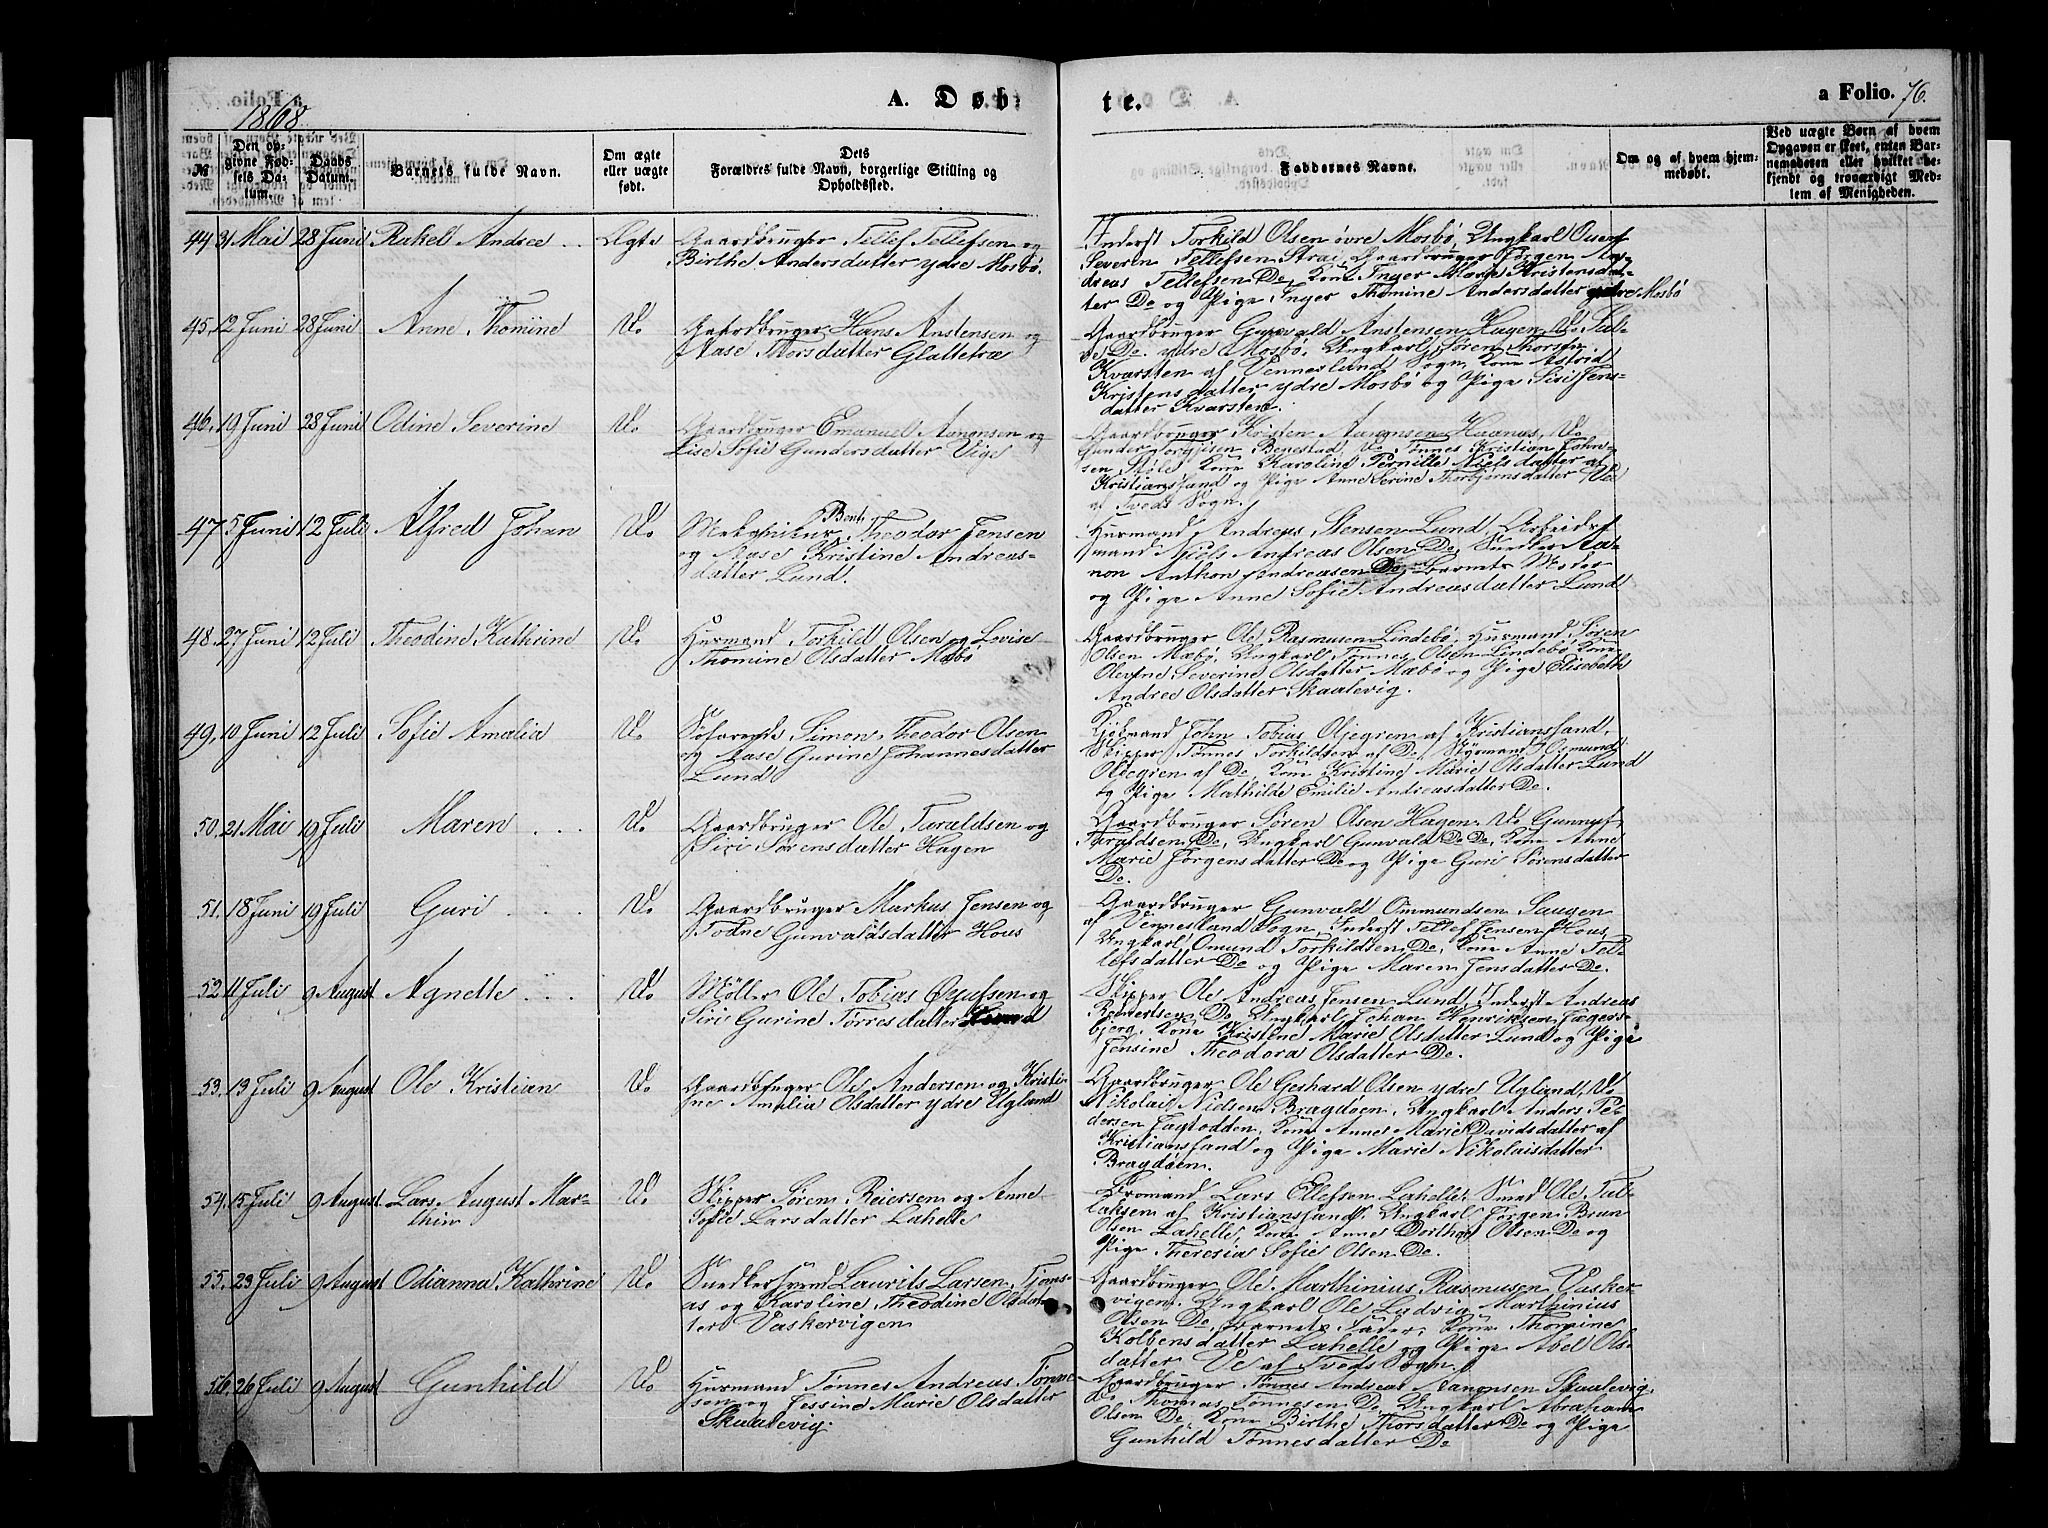 1868.
A. Døb=
te.
a Folio. 76.
№
Den op=
givne Fød=
sels Da=
tum.
Daabs
Datum.
Barnets fulde Navn.
Om ægte
eller uægte
født.
Dets
Forældres fulde Navn, borgerlige Stilling og
Opholdssted.
Faddernes Navne.
Om og af hvem hjem=
medøbt.
Ved uægte Børn af hvem
Opgaven er skeet, enten Bar=
nemoderen eller hvilket be=
kjendt og troværdigt Med=
lem af Menigheden.
44 31 Mai 28 Juni Rakel Andrea Ægte
Gaardbruger Tellef Tellefsen og
Birthe Andersdatter ydre Mosbø.
Inderst Torkild Olsen øvre Mosbø, Ungkarl
Severin Tellefsen Strai, Gaardbruger Jørgen An-
dreas Tellefsen Do, Kone Inger Marie Kristensdat-
ter Do og Pige Inger Thomine Andersdatter ydre Mosbø
45. 12 Juni 28 Juni Anne Thomine Do
Gaardbruger Hans Anstensen og
Aase Thorsdatter Glattetræ
Gaardbruger Gunvald Anstensen Hagen, Do Sal-
ve Do. ydre Mosbø, Ungkarl Søren Thorsen
Kvarsten af Vennesland Sogn, Kone Astrid
Kristensdatter ydre Mosbø og Pige Siri Jens-
datter Kvarsten.
46. 19 Juni 28 Juni Odine Severine Do
Gaardbruger Emanuel Aanonsen og
Lise Sofie Gundersdatter Vige
Gaardbruger Kristen Aanonsen Haanes, Do
Gunder Jorgisen Benestad, Do Tønnes Kristian John-
sen Støle, Kone Karoline Pernille Nielsdatter af
Kristianssand og Pige Anne Serine Thorbjørnsdatter Ve
af Tveds Sogn.
47 5 Juni 12 Juli Alfred Johan Do
Mekanikus Bent Theodor Jensen
og Aase Kristine Andreas-
datter Lund.
Husmand Andreas Stensen Lund, Arbeids-
mand Niels Andreas Olsen Do, Snedker Aa-
non Anthon Andreasen Do, Barnets Moder
og Pige Anne Sofie Andreasdatter Lund
48. 27 Juni 12 Juli Theodine Kathrine Do
Husmand Torkild Olsen og Levise
Thomine Olsdatter Mæbø
Gaardbruger Ole Rasmusen Lindebø, Husmand Søren
Olsen Mæbø, Ungkarl Tønnes Olsen Lindebø, Kone
Olevine Severine Olsdatter Mæbø og Pige Elisabeth
Andrea Olsdatter Skaalevig.
49. 10 Juni 12 Juli Sofie Amalia Do
Søfarende Simon Theodor Olsen
og Aase Gurine Johannesdatter
Lund
Kjøbmand John Tobias Oljegren af Kristianssand,
Skipper Tønnes Torkildsen af Do, Styrmand Osmund
Oldegren af Do, Kone Kristine Marie Olsdatter Lund
og Pige Mathilde Emilie Andreasdatter Do.
50. 21 Mai 19 Juli Maren Do
Gaardbruger Ole Taraldsen og
Siri Sørensdatter Hagen
Gaardbruger Søren Olsen Hagen, Do Gunnuf
Taraldsen Do, Ungkarl Gunvald Do Do, Kone Anne
Marie Jørgensdatter Do og Pige Guri Sørensdatter
Do.
51. 18 Juni 19 Juli Guri Do
Gaardbruger Markus Jensen og
Todne Gunvaldsdatter Hous
Gaardbruger Gunvald Ommundsen Saugen
af Vennesland Sogn, Inderst Tellef Jensen Hous,
Ungkarl Omund Torkildsen Do, Kone Anne Tel-
lefsdatter Do og Pige Maren Jensdatter Do.
52 11 Juli 9 August Agnette Do
Møller Ole Tobias Osufsen og
Siri Gurine Tørresdatter Lund
Skipper Ole Andreas Jensen Lund, Inderst Andreas
Reinertsen Do, Ungkarl Johan Henriksen Jægers-
bjerg, Kone Kristene Marie Olsdatter Lund og Pige
Jensine Theodora Olsdatter Do.
53. 13 Juli 9 August Ole Kristian Do
Gaardbruger Ole Andersen og Kristi-
ne Amalia Olsdatter ydre Ugland
Gaardbruger Ole Gerhard Olsen ydre Ugland, Do
Nikolai Nielsen Bragdøen, Ungkarl Anders Pe-
dersen Fagtodden, Kone Anne Marie Davidsdatter af
Kristianssand og Pige Marie Nikolaisdatter
Bragdøen.
54. 15 Juli 9 August Lars August Mar-
thin Do
Skipper Søren Reiersen og Anne
Sofie Larsdatter Lahelle
Bromand Lars Ellefsen Lahelle, Smed Ole Tal-
laksen af Kristianssand, Ungkarl Jørgen Brun
Olsen Lahelle, Kone Anne Dorthea Olsen Do og
Pige Theresia Sofie Olsen Do.
55. 23 Juli 9 August Odianna Kathrine Do
Snedkersvend Laurits Larsen Tjoms-
as og Karoline Theodine Olsdat-
ter Vaskervigen
Gaardbruger Ole Marthinius Rasmusen Vasker-
vigen, Ungkarl Ole Ludvig Marthinius
Olsen Do, Barnets Fader, Kone Thomine
Kolbensdatter Lahelle og Pige Abel Ols-
datter Ve af Tveds Sogn.
56. 26 Juli 9 August Gunhild Do
Husmand Tønnes Andreas Tønne-
sen og Jessine Marie Olsdatter
Skaalevig.
Gaardbruger Tønnes Andreas Aanonsen Skaalevig,
Do Thomas Tønnesen Do, Ungkarl Abraham
Olsen Do, Kone Birthe Thorsdatter Do og Pige
Gunhild Tønnesdatter Do